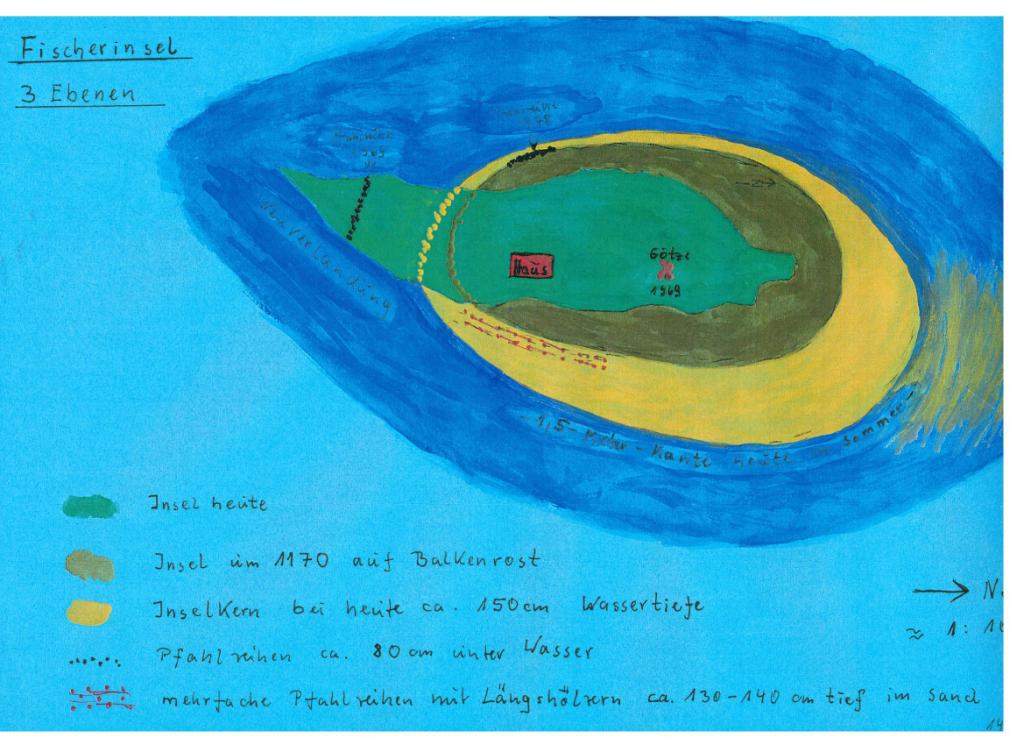 Fischerinsel
3 Ebenen
1969
Neuverlandung
Haus
Götze
1969
1,5-Meter-Kante heute im Sommer
Insel heute
Insel um 1170 auf Balkenrost
Inselkern bei heute ca. 150cm Wassertiefe
N.
≈ 1:
Pfahlreihen ca. 80 cm unter Wasser
mehrfache Pfahlreihen mit Längshölzern ca. 130-140 cm tief im Sand